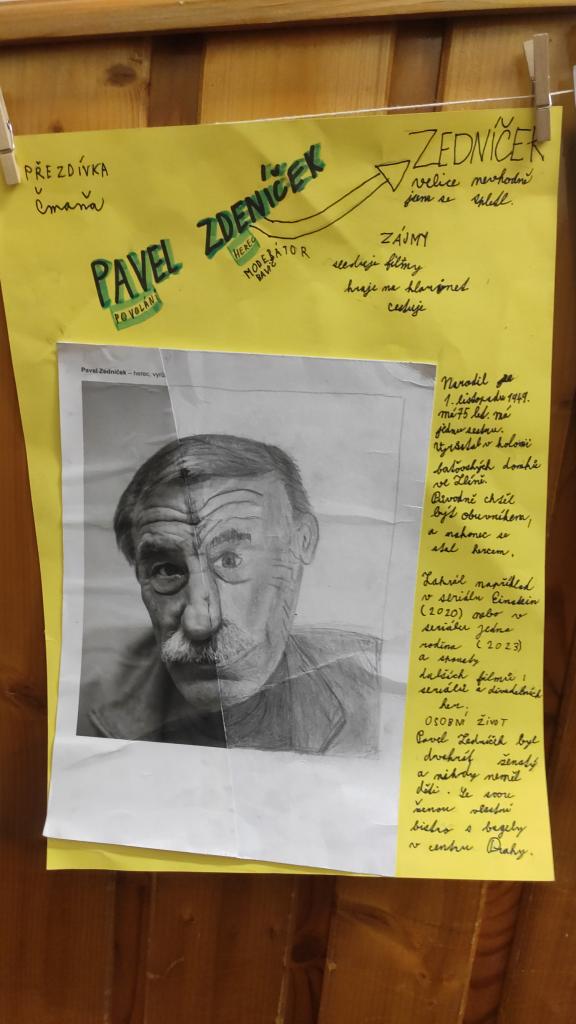 PŘEZDÍVKA
Čmaňa
PAVEL ZDENÍČEK
POVOLÁNÍ
HEREC
MODERÁTOR
BAVIČ
ZEDNÍČEK
velice nevhodně
jsem se spletl.
ZÁJMY
sleduje filmy
hraje na klarinet
cestuje
Pavel Zedníček – herec, vyrů
Narodil se
1. listopadu 1949.
má 75 let. má
jednu sestru.
Vyrůstal v kolonii
baťovských domků
ve Zlíně.
Původně chtěl
být obuvníkem,
a nakonec se
stal hercem.
Zahrál například
v seriálu Einstein
(2020) nebo v
seriálu jedna
rodina (2023)
a spousty
dalších filmů,
seriálů a divadelních
her.
OSOBNÍ ŽIVOT
Pavel Zedníček byl
dvakrát ženatý
a nikdy neměl
děti. Se svou
ženou vlastní
bistro s bagely
v centru Prahy.